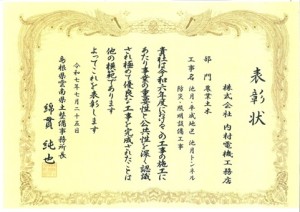 表彰状
株式会社 内村電機工務店
部門 農業土木
工事名 池月・平成地区 池月トンネル
防災・照明設備工事
貴社は令和六年度における、の工事の施工に
あたり事業の重要性と公共性を深く認識
され極めて優良な工事を完成されたことは
他の模範であります
よってこれを表彰します
令和七年七月二十五日
島根県雲南県土整備事務所長
綿貫 純也